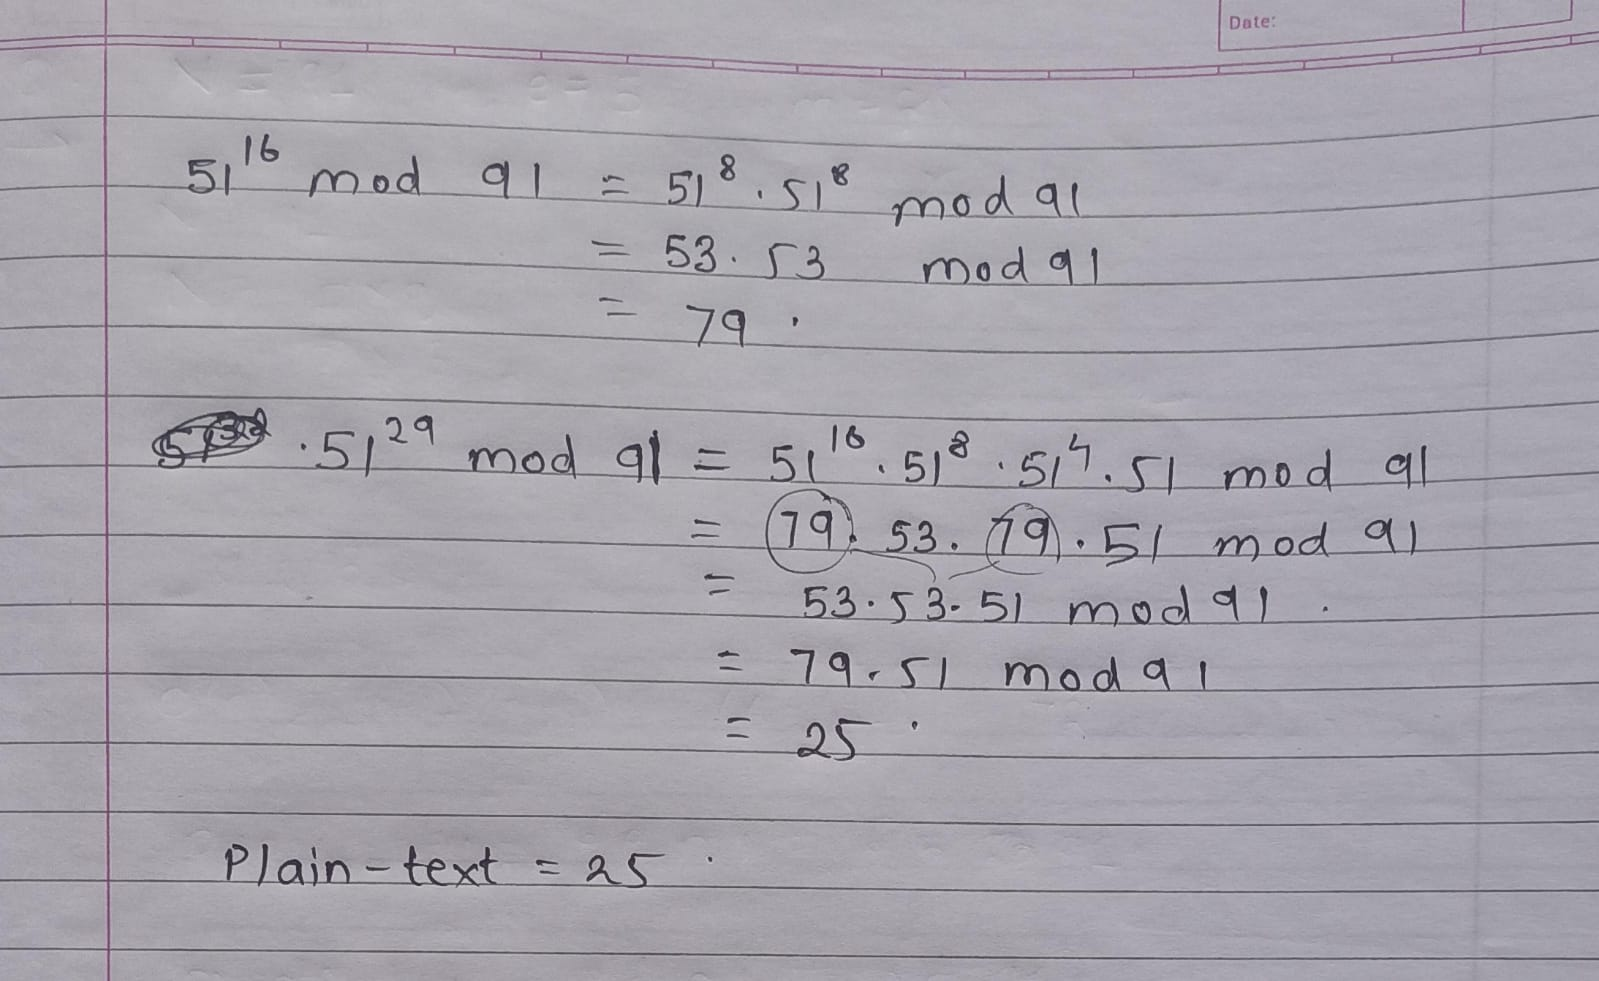 Date:
51¹⁶ mod 91 = 51⁸ . 51⁸ mod 91
= 53 . 53 mod 91
= 79 .
. 51²⁹ mod 91 = 51¹⁶ . 51⁸ . 51⁴ . 51 mod 91
= 79 . 53 . 79 . 51 mod 91
= 53 . 53 . 51 mod 91 .
= 79 . 51 mod 91
= 25 .
Plain-text = 25 .